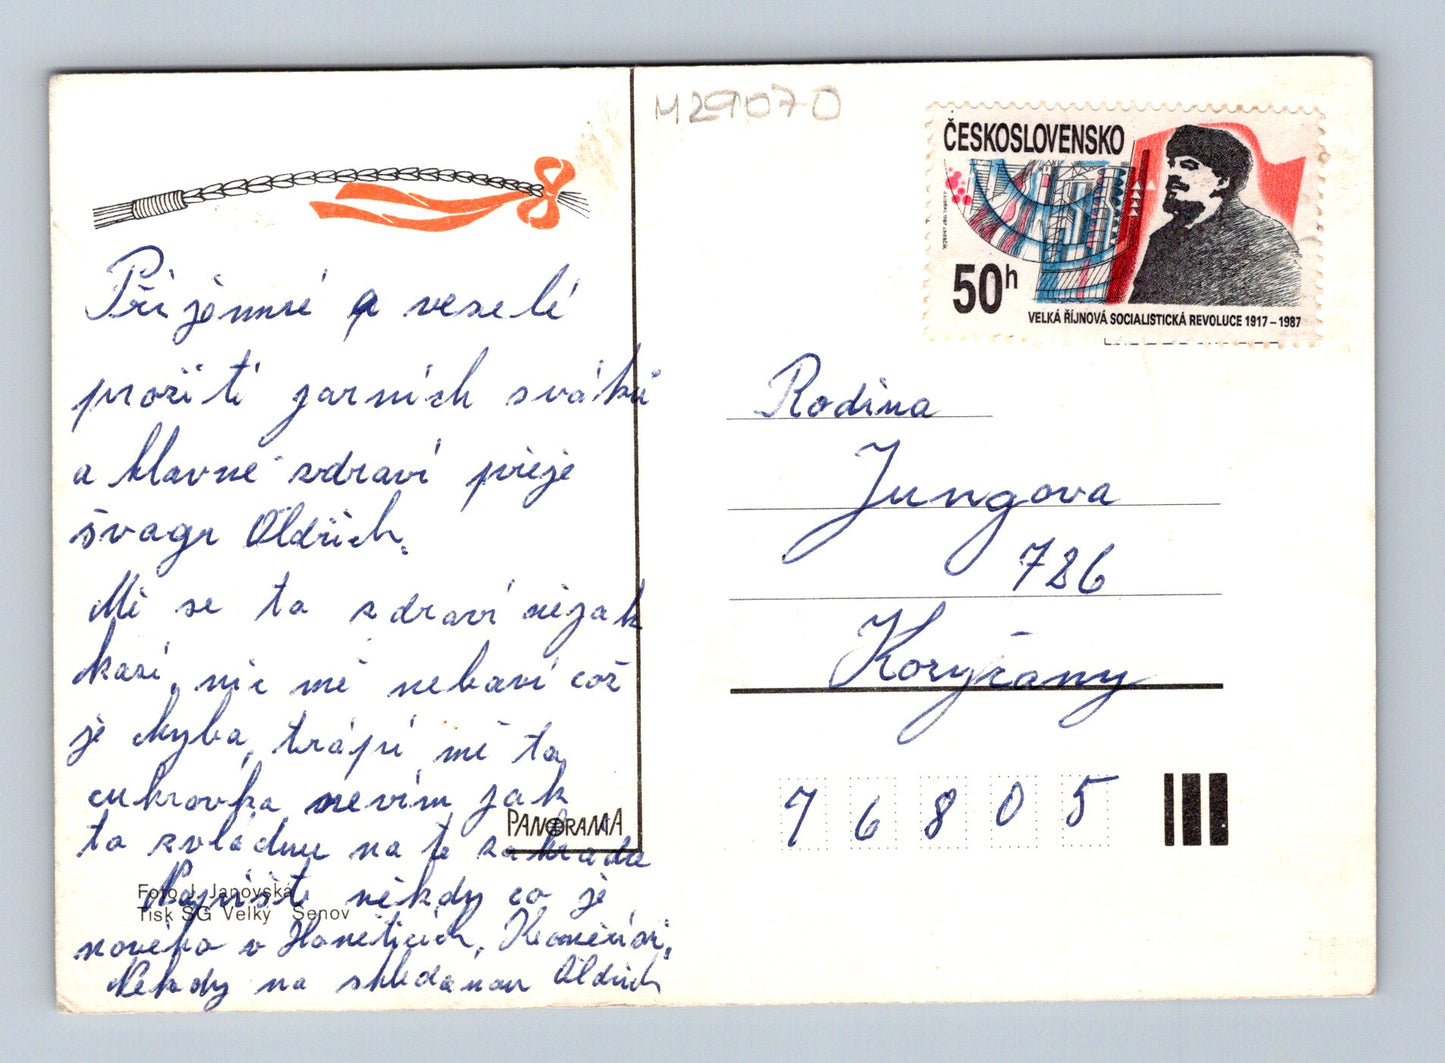 M29070
ČESKOSLOVENSKO
50h
VELKÁ ŘÍJNOVÁ SOCIALISTICKÁ REVOLUCE 1917–1987
Příjemné a veselé
prožití jarních svátků
a hlavně zdraví přeje
švagr Oldřich.
Mě se to zdraví nějak
kazí, nic mě nebaví což
je chyba, trápí mě ta
cukrovka nevím jak
to zvládnu na té zahradě
Napište někdy co je
nového v Haněticích, Kroměříži,
Někdy na shledanou Oldřich
PANORAMA
Foto J. Janovská
Tisk SG Velký Šenov
Rodina
Jungova
726
Koryčany
76805